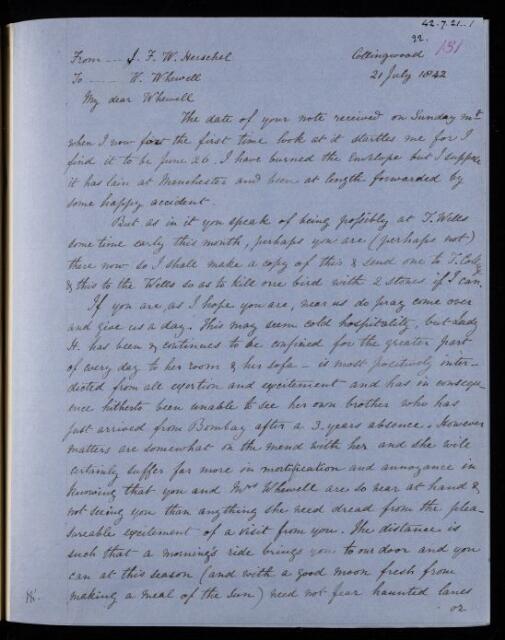 42.7.21-1
22.
131
From --- J. F. W. Herschel
Collingwood
To --- W. Whewell
21 July 1842
My dear Whewell
The date of your note received on Sunday mg
when I now for the first time look at it startles me for I
find it to be June 26. I have burned the envelope but I suppose
it has lain at Manchester and been at length forwarded by
some happy accident.
But as in it you speak of being possibly at T. Wells
some time early this month, perhaps you are (perhaps not)
there now so I shall make a copy of this & send one to T. Coll.
& this to the Wells so as to kill one bird with 2 stones if I can.
If you are, as I hope you are, near us do pray come over
and give us a day. This may seem cold hospitality, but Lady
H. has been & continues to be confined for the greater part
of every day to her room & her sofa – is most positively inter-
dicted from all exertion and excitement and has in consequ-
ence hitherto been unable to see her own brother who has
just arrived from Bombay after a 3 years absence. However
matters are somewhat on the mend with her and she will
certainly suffer far more in mortification and annoyance in
knowing that you and Mrs Whewell are so near at hand &
not seeing you than anything she need dread from the plea-
sureable excitement of a visit from you. The distance is
such that a morning's ride brings you to our door and you
can at this season (and with a good moon fresh from
making a meal of the Sun) need not fear haunted lanes
or